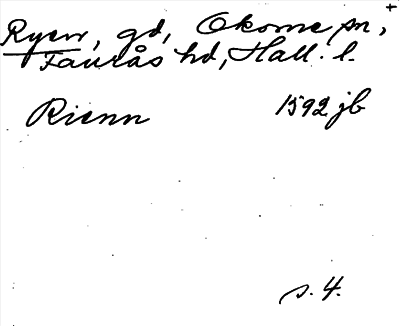 +
Ryen, gd, Okome sn,
Faurås hd, Hall. l.
Rienn 1592 jb
s. 4.